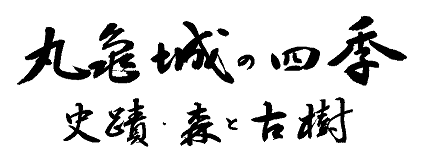 丸亀城の四季
史蹟・森と古樹